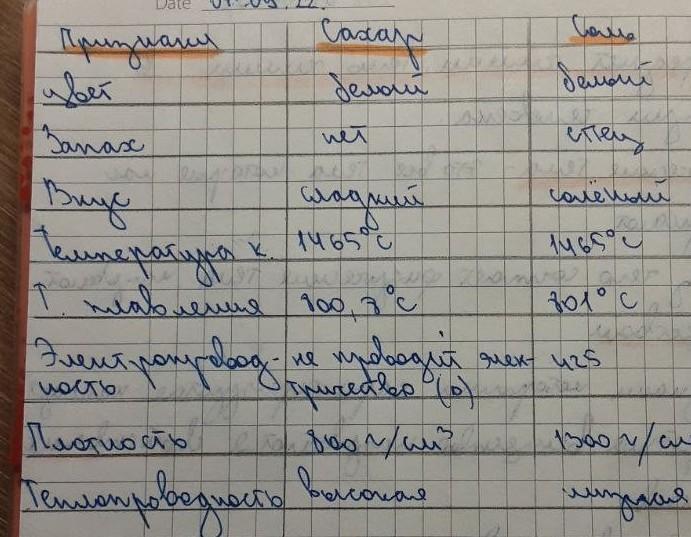 Date 01.09.22
Признаки Сахар Соль
цвет белый белый
Запах нет спец
Вкус сладкий солёный
Температура к. 1465°С 1465°С
Т. плавления 800,8°С 801°С
Электропровод- не проводит элек- 425
ность тричество (0)
Плотность 800 г/см³ 1300 г/см
Теплопроводность высокая